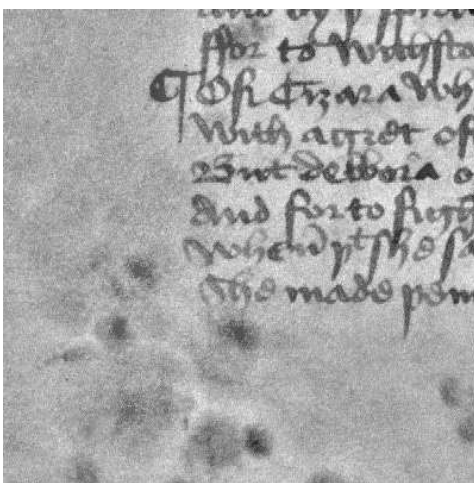 ffor to withsto
¶ Of Cizara wh
with a gret os
But delbora o
And for to figh
when yᵗ she sa
She made þem